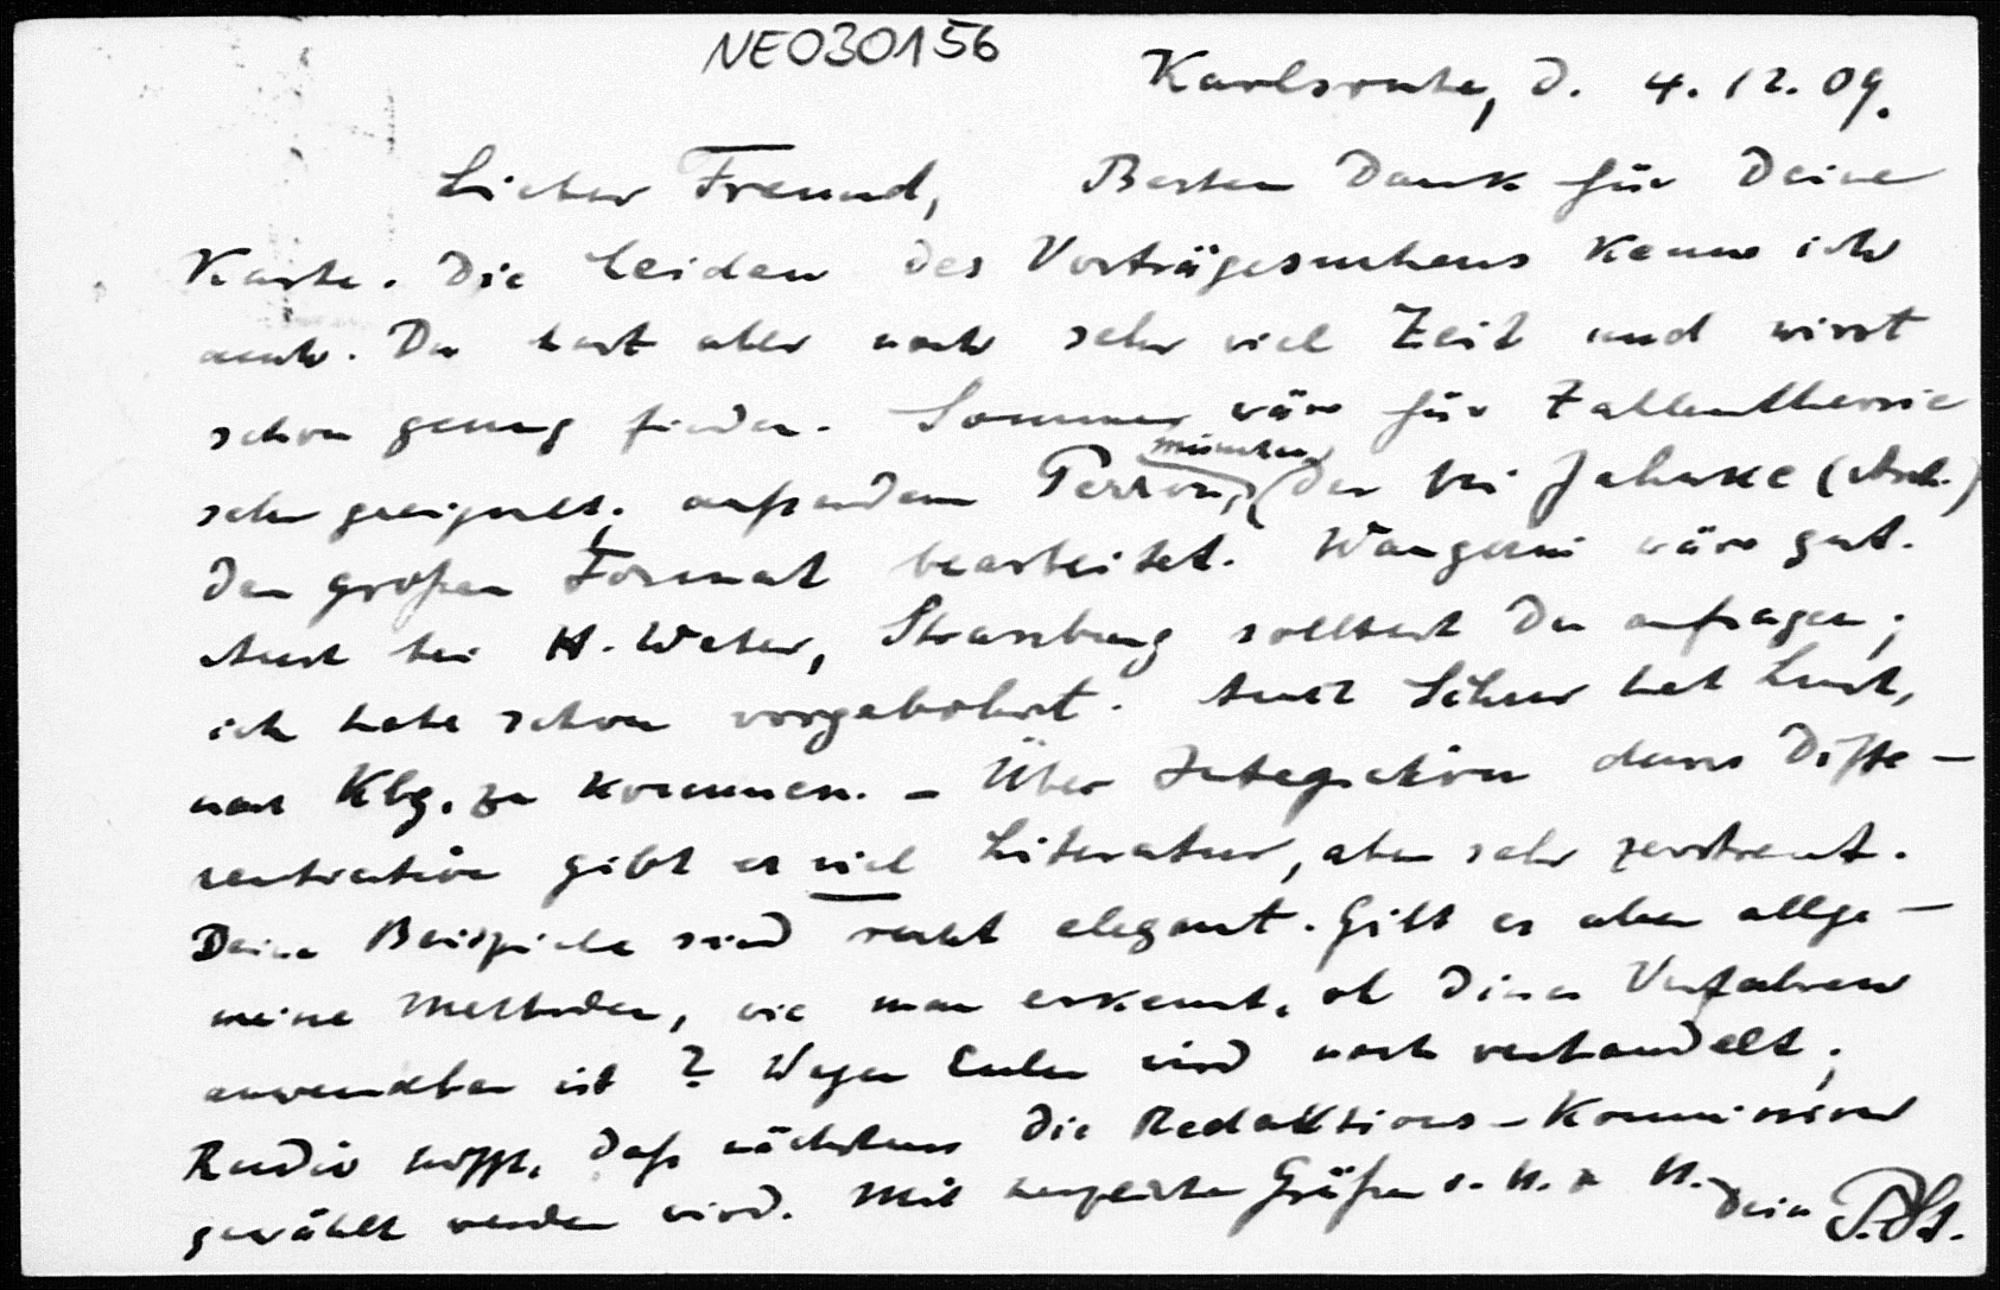 NE030156
Karlsruhe, d. 4.12.09.
Lieber Freund, Besten Dank für Deine
Karte. Die Leiden des Vorträgesuchens kenne ich
auch. Du hast aber noch sehr viel Zeit und wirst
schon genug finden. Sommer wäre für Zahlentheorie
sehr geeignet; außerdem Perron, München
(der bei Jahnke (Arch.)
den großen Fermat bearbeitet. Wangerin wäre gut.
Auch bei H. Weber, Strassburg solltest Du anfragen;
ich habe schon vorgebohrt. Auch Schur hat Lust,
nach Kbg. zu kommen. - Über Integration durch Diffe-
rentiation gibt es viel Literatur, aber sehr zerstreut.
Deine Beispiele sind recht elegant. Gibt es aber allge-
meine Methoden, wie man erkennt, ob dieses Verfahren
anwendbar ist? Wegen Euler wird noch verhandelt;
Rudio hofft, daß nächstens die Redaktions-Kommission
gewählt werden wird. Mit herzlichen Grüßen v. H. z. H. Dein P. St.